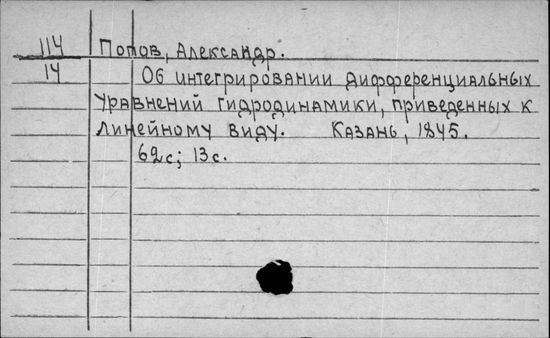 114 Попов, Александр.
14 Об интегрировании дифференциальных
уравнений гидродинамики, приведенных к
линейному виду. Казань, 1845.
62с; 13с.